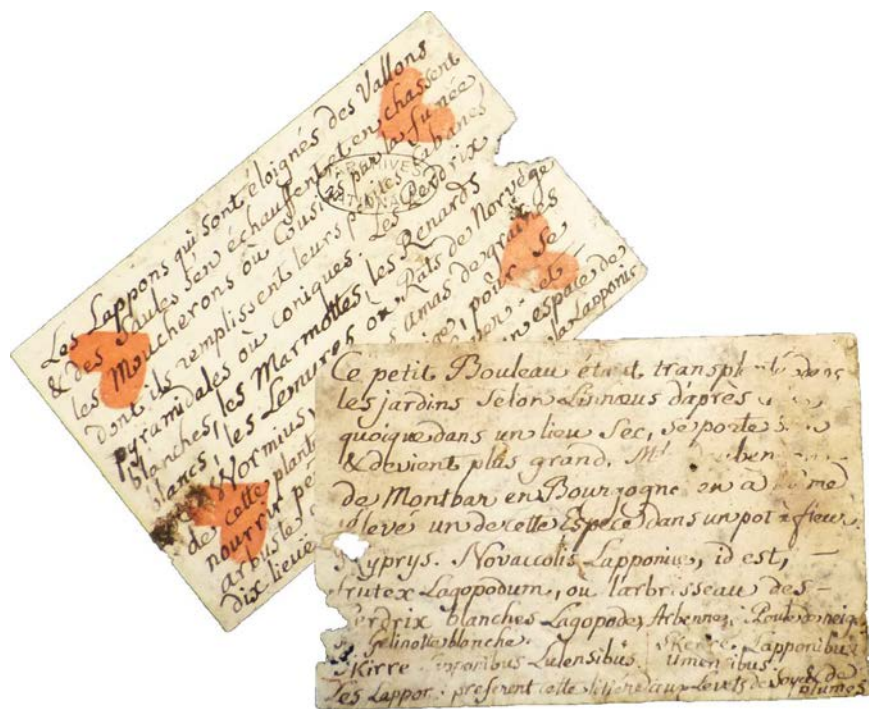 Les Lappons qui sont éloignés des Vallons
& des Saules s'en échauffent et en chassent
les Moucherons ou Cousins par la fumée,
dont ils remplissent leurs petites Cabanes
pyramidales ou coniques. Les Perdrix
blanches, les Marmottes, les Renards
blancs, les Lemures ou Rats de Norvége
Wormius, amas de graines
de cette plante pour se
nourrir
arbuste espace de
dix lieuë la Lapponie
ARCHIVES
NATIONALES
Ce petit Bouleau étant transplanté dans
les jardins Selon Linnœus d'après
quoique dans un lieu Sec, se porte
& devient plus grand. Mr.
de Montbar en Bourgogne en a même
élevé un de cette Espece dans un pot à fleur.
Novaccolis Lapponiæ, id est, —
frutex Lagopodum, ou l'arbrisseau des —
Perdrix blanches Lagopodes, Arbennez, Poule de neige
Gelinotte blanche.
Skerre Lapponibus
Skirre Lulensibus. Umensibus.
Les Lappons préferent cette litiére aux Levets de Soye & de
plumes